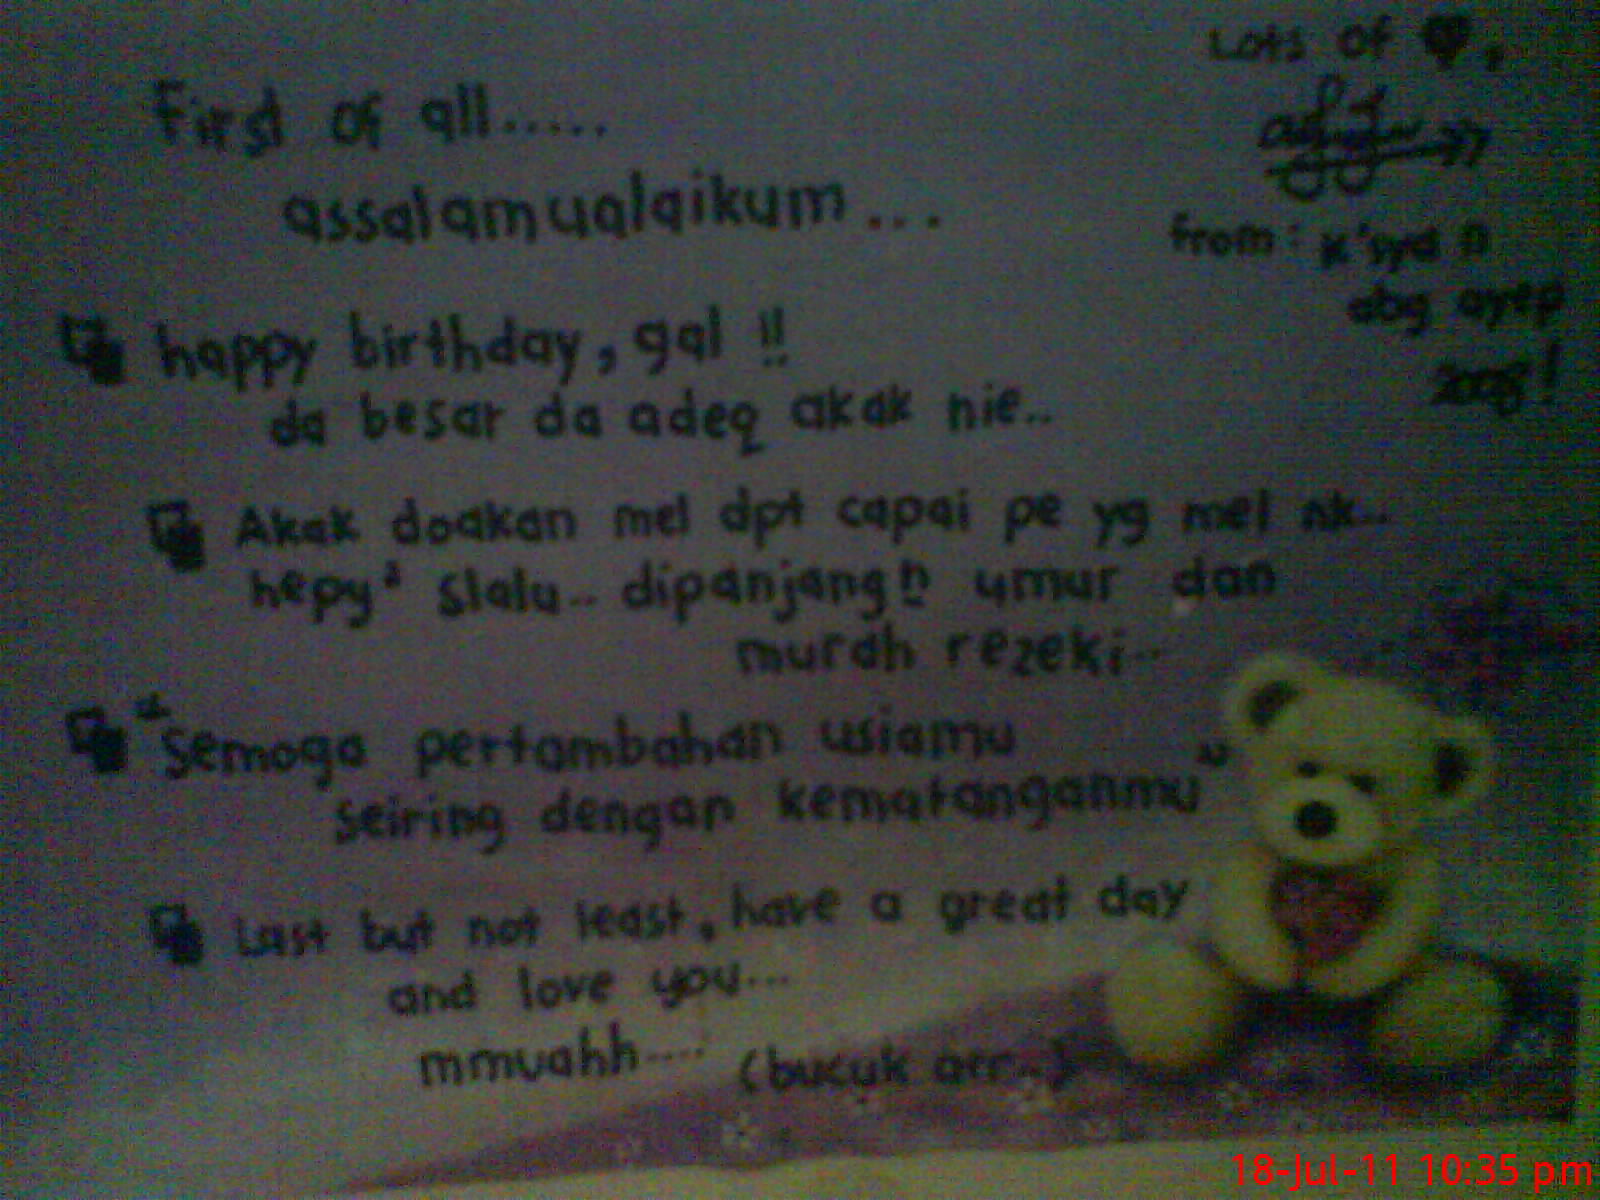 First of all.....
assalamualaikum...
happy birthday, gal !!
da besar da adeq akak nie..
Akak doakan mel dpt capai pe yg mel nk..
hepy² slalu.. dipanjangn umur dan
murah rezeki..
"Semoga pertambahan usiamu
seiring dengan kematanganmu"
Last but not least, have a great day
and love you...
mmuahh.... (bucuk arr..)
Lots of ♥,
from: k'syd n
abg ayep
2008!
18-Jul-11 10:35 pm